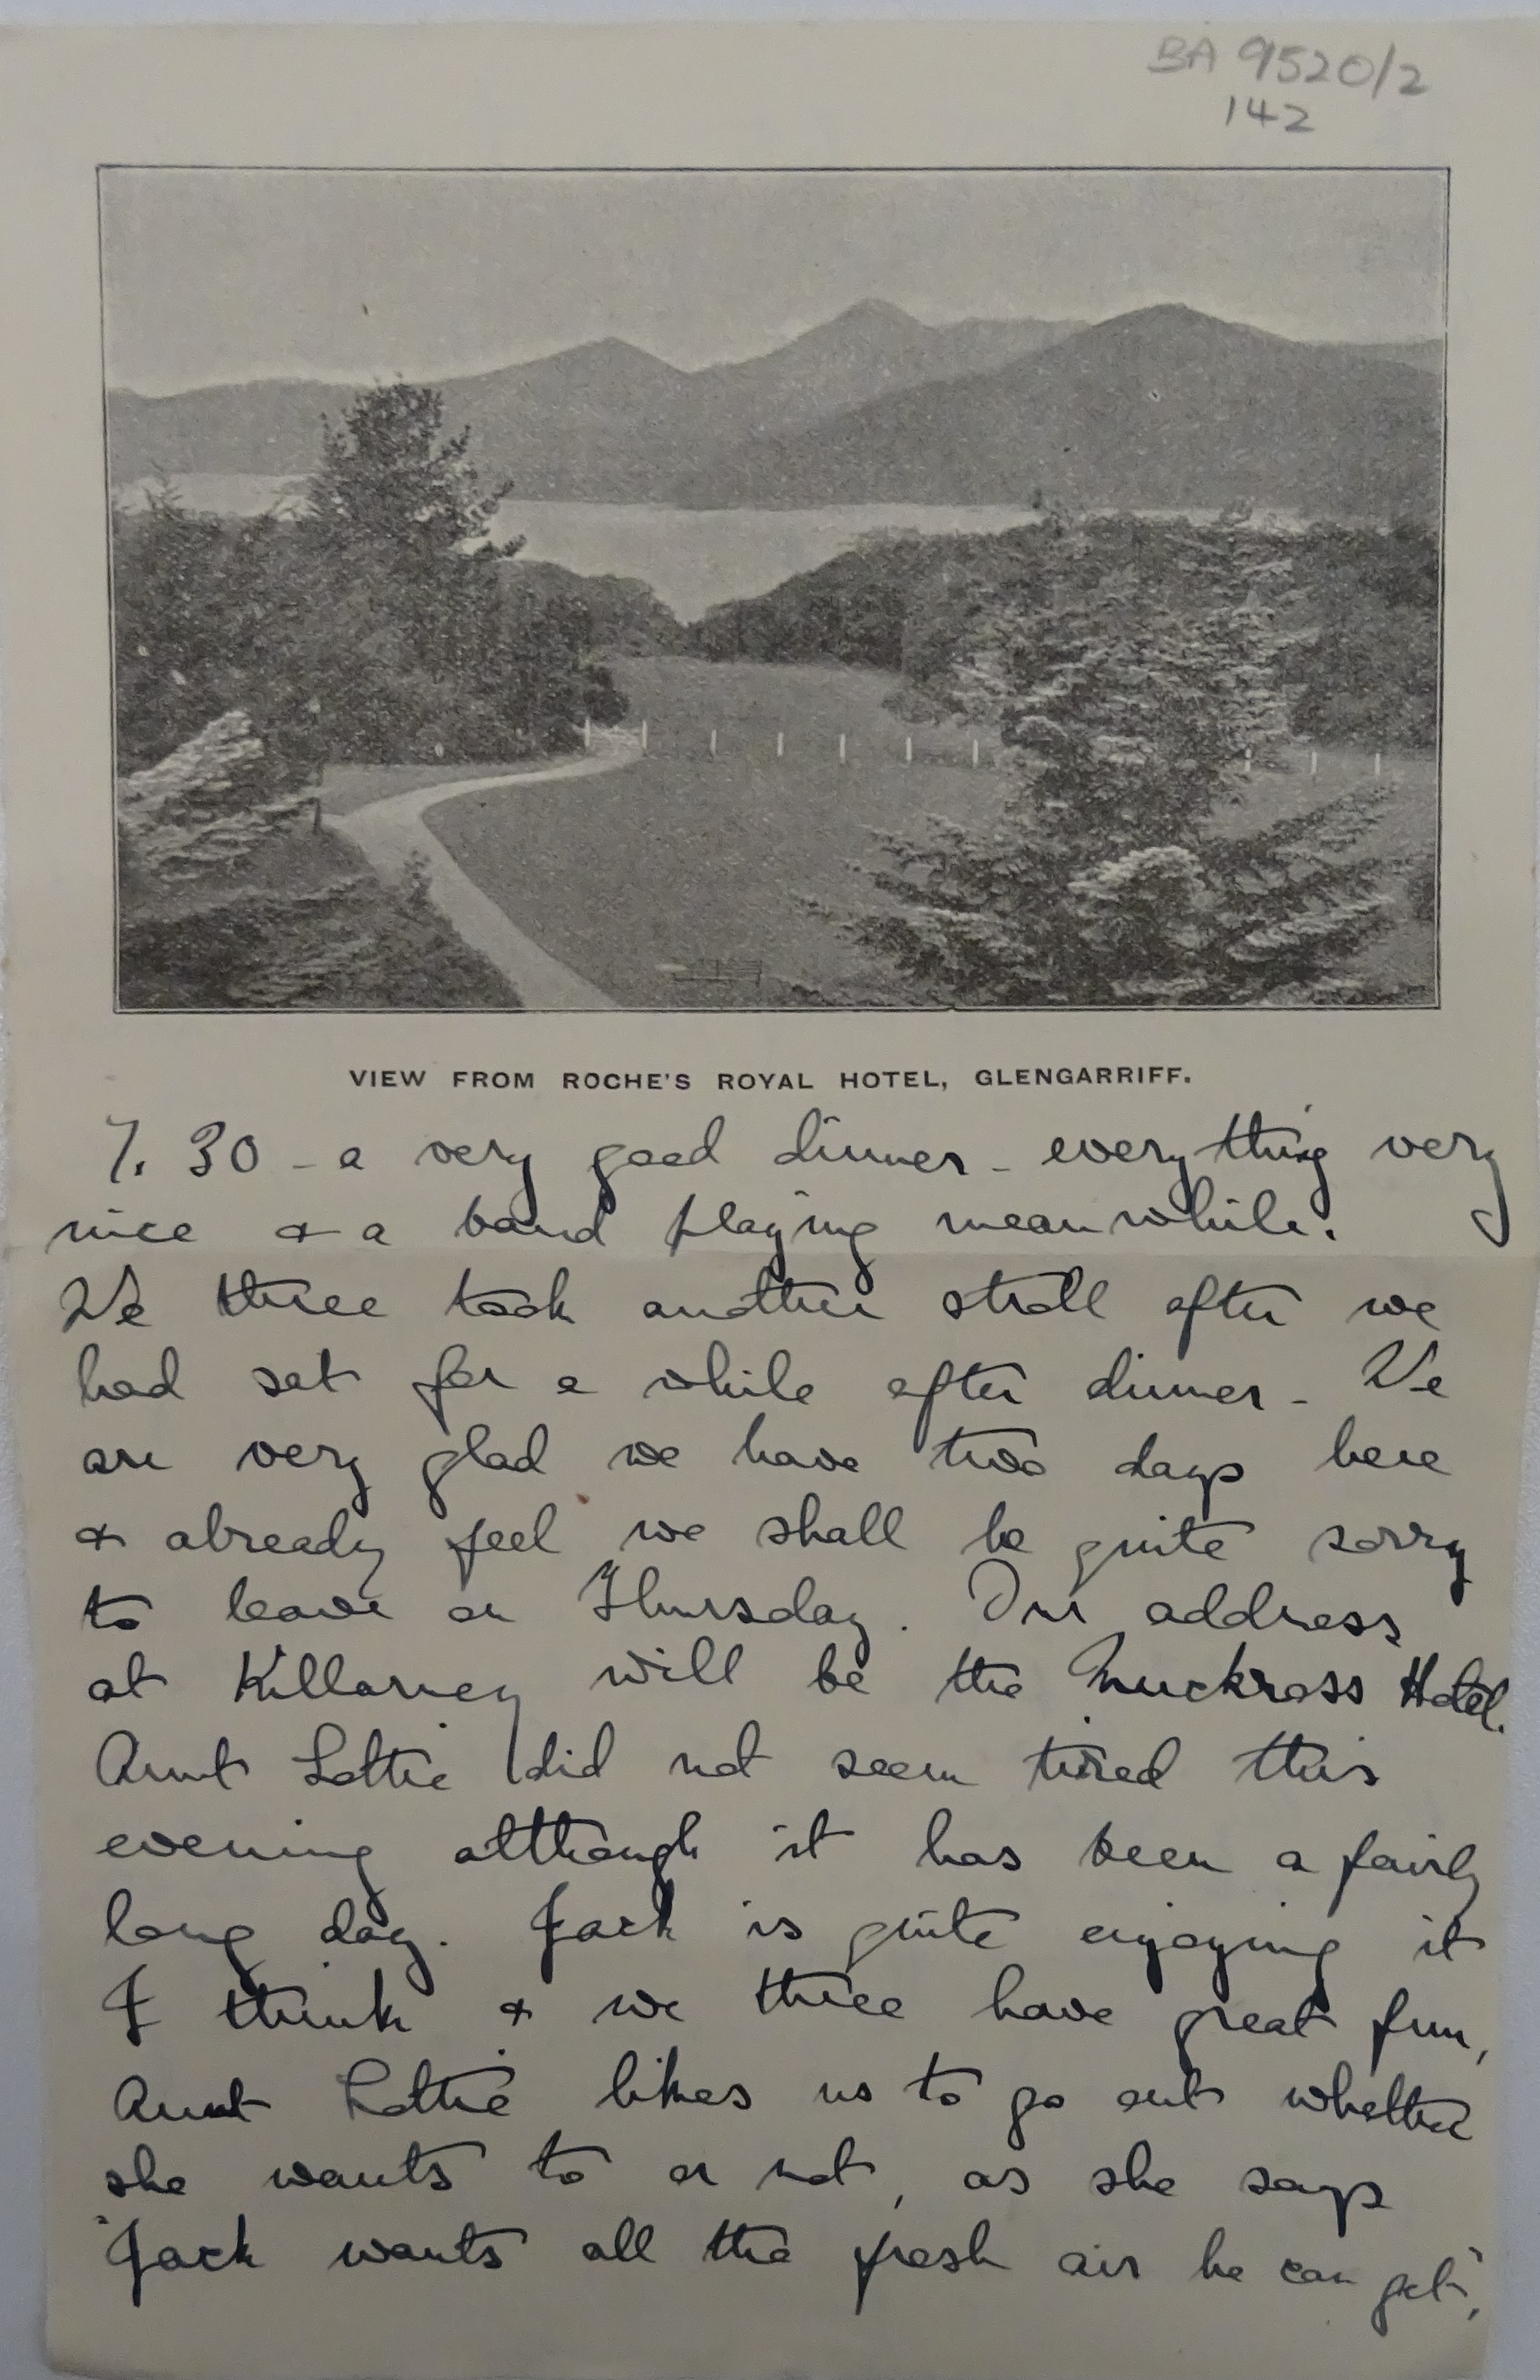 BA 9520/2
142
VIEW FROM ROCHE'S ROYAL HOTEL, GLENGARRIFF.
7.30 - a very good dinner - everything very
nice & a band playing meanwhile.
We three took another stroll after we
had sat for a while after dinner - We
are very glad we have two days here
& already feel we shall be quite sorry
to leave on Thursday. Our address
at Killarney will be the Muckross Hotel.
Aunt Lottie did not seem tired this
evening although it has been a fairly
long day. Jack is quite enjoying it
I think & we three have great fun,
Aunt Lottie likes us to go out whether
she wants to or not, as she says
"Jack wants all the fresh air he can get",